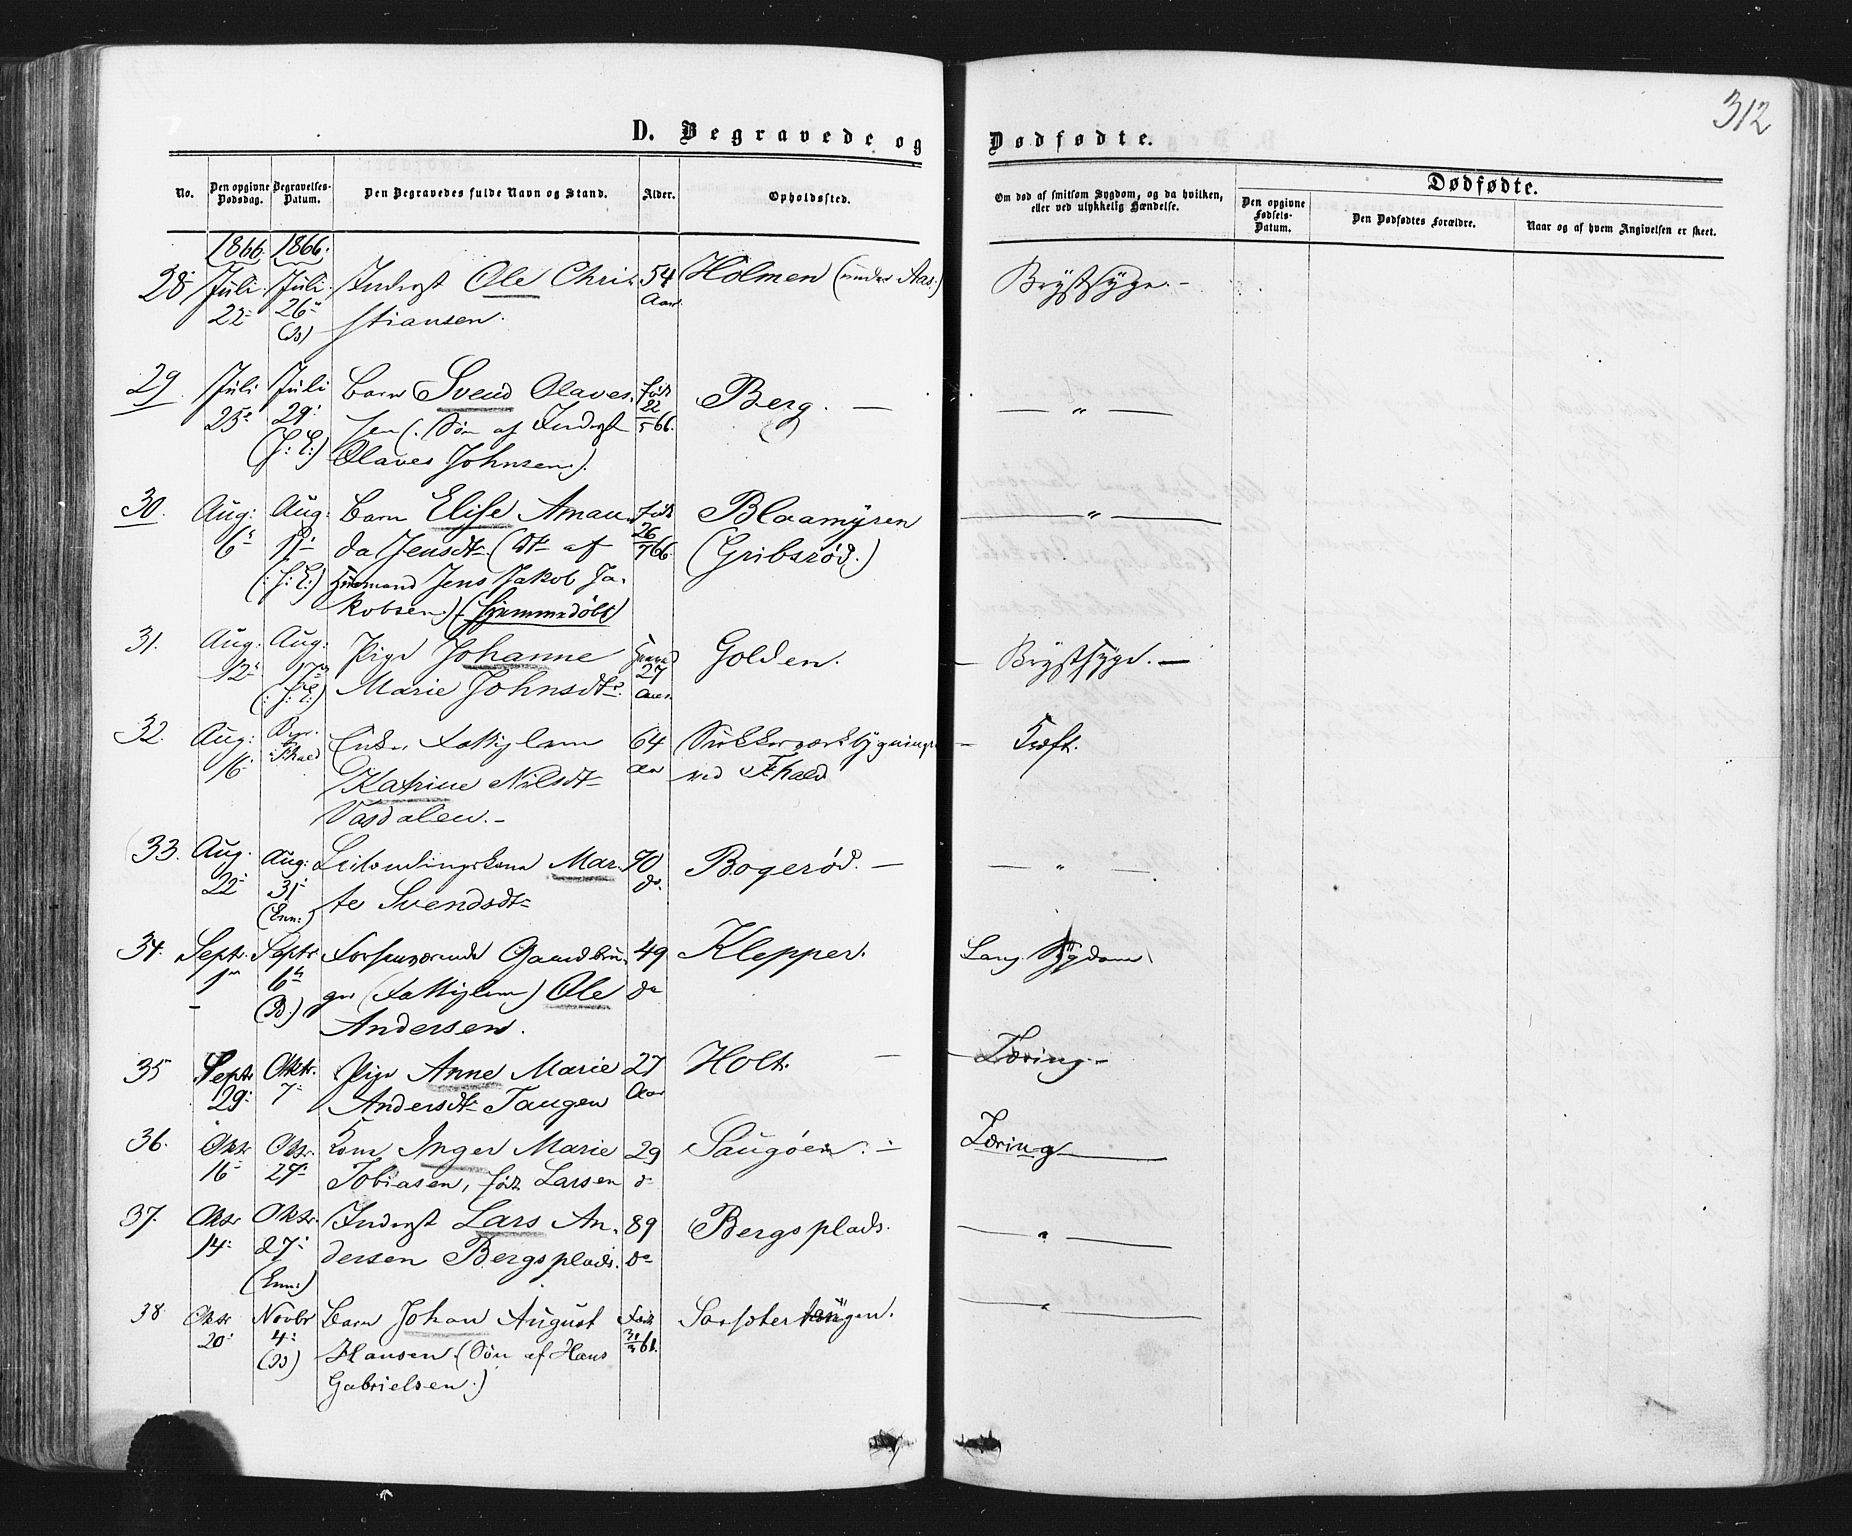 312
D. Begravede og Dødfødte.
No. Den opgivne Dødsdag. Begravelses-Datum. Den Begravedes fulde Navn og Stand. Alder. Opholdssted. Om død af smitsom Sygdom, og da hvilken, eller ved ulykkelig Hændelse.
Dødfødte.
Den opgivne Fødsels-Datum. Den Dødfødtes Forældre. Naar og af hvem Angivelsen er skeet.
1866 1866.
28. Juli Juli Inderst Ole Chri- 54 Holmen (under Aas.) Brystsyge.
22 26 stiansen. Aar
29 Juli Juli Barn Svend Olaves- Født Berg. — — " —
25 29 sen (Søn af Inderst 22/5 66.
(J: E:) Olaves Johnsen).
30. Aug: Aug: Barn Elise Aman- Født Blaamyren — " —
6 da Jensdt (Dt af 26/7 66. (Gribsrød.)
(: J: E:) Huusmand Jens Jakob Ja-
kobsen.) (Hjemmedøbt)
31. Aug: Aug: Pige Johanne Golden. — Brystsyge. —
12 17 Marie Johnsdt 27
(: J: E:) Aar.
32. Aug: Enke, Fattiglem 64 Sukkerværksbygningen
16 Fhald Katrine Nilsdt Aar ved Fhald
Vasdalen. —
33. Aug. Aug: Kone Mar- 70 Bogerød. — — " —
22 31 te Svendsdt do.
(Enn:)
34. Septr. Septr Forhenværende Gaardbru- 49 Klepper. Lang Sygdom
1 6 ger (Fattiglem) Ole do
Andersen.
35 Septr Oktr. Pige Anne Marie 27 Holt. — Tæring. —
29 7 Andersdt Taugen Aar
36. Oktr Oktr. Kone Inger Marie 29 Saugøen. — Tæring —
16 27 Tobiasen, født Larsen do
37. Oktr Oktr. Inderst Lars An- 89 Bergsplads. — " —
14 27 dersen Bergsplads. do
(Enn:)
38. Oktr Novbr Barn Johan August Født — " —
20 4 Hansen (Søn af Hans
Gabrielsen.)